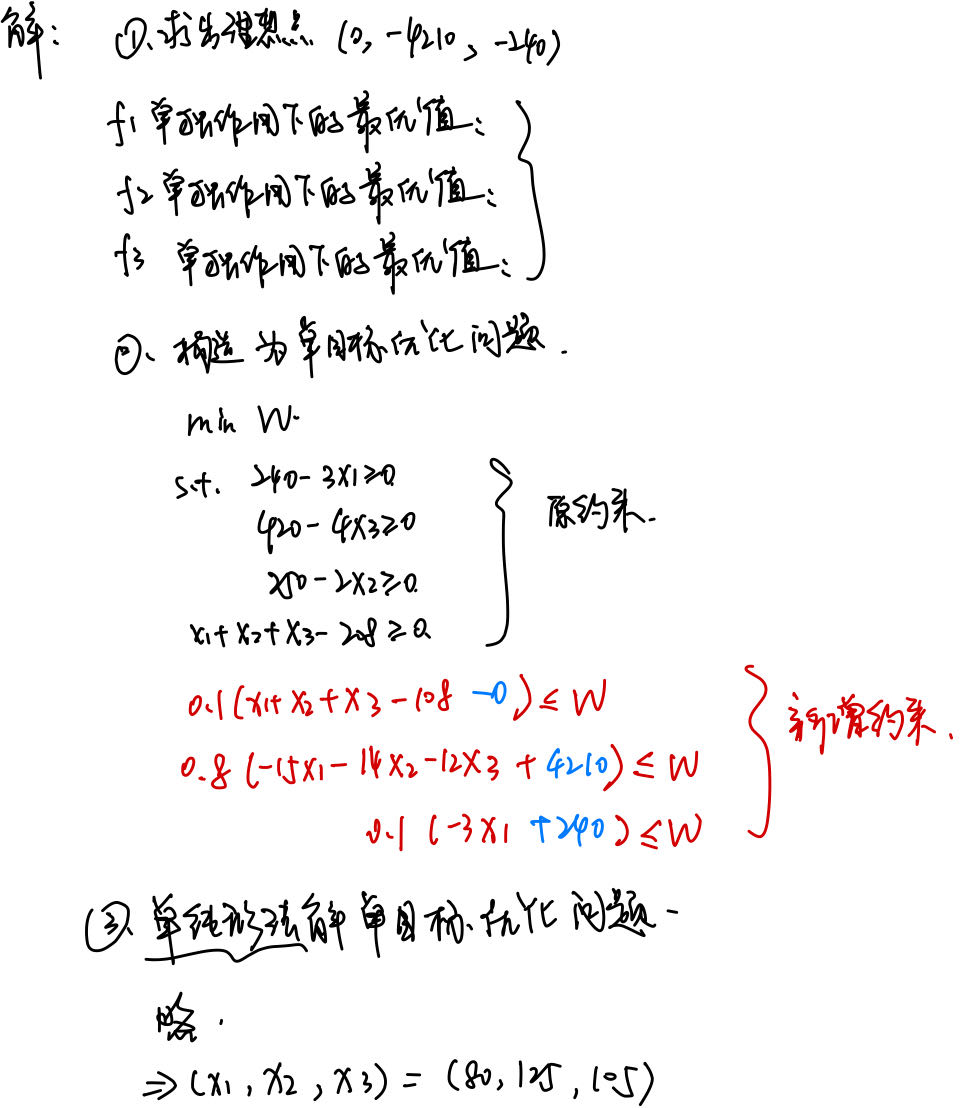 解: ①、求出理想点 (0, -4210, -240)
f1 单独作用下的最优值:
f2 单独作用下的最优值:
f3 单独作用下的最优值:
②、构造为单目标优化问题.
min W.
s.t. 240-3x1≥0
420-4x3≥0
250-2x2≥0.
x1+x2+x3-208≥0.
原约束.
0.1(x1+x2+x3-108-0)≤W
0.8(-15x1-14x2-12x3+4210)≤W
0.1(-3x1+240)≤W
新增约束.
③、单纯形法解单目标优化问题-
略.
⇒(x1, x2, x3) = (80, 125, 105)